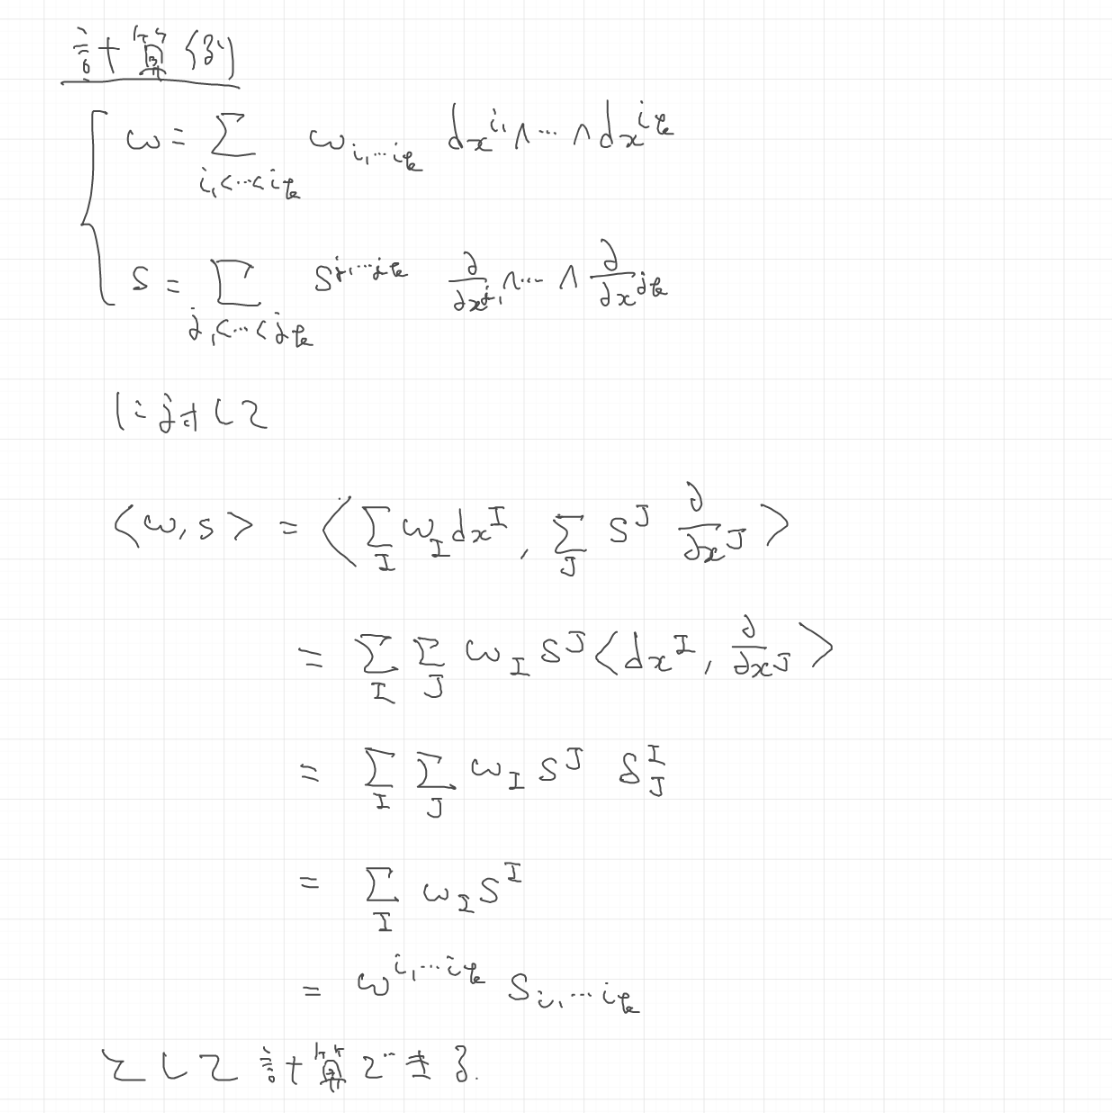 計算例
ω = Σ_{i₁<⋯<i_k} ω_{i₁⋯i_k} dx^{i₁}∧⋯∧dx^{i_k}
s = Σ_{j₁<⋯<j_k} s^{j₁⋯j_k} ∂/∂x^{j₁}∧⋯∧∂/∂x^{j_k}
に対して
<ω, s> = <Σ_I ω_I dx^I, Σ_J s^J ∂/∂x^J>
= Σ_I Σ_J ω_I s^J <dx^I, ∂/∂x^J>
= Σ_I Σ_J ω_I s^J δ^I_J
= Σ_I ω_I s^I
= ω^{i₁⋯i_k} s_{i₁⋯i_k}
として計算できる.